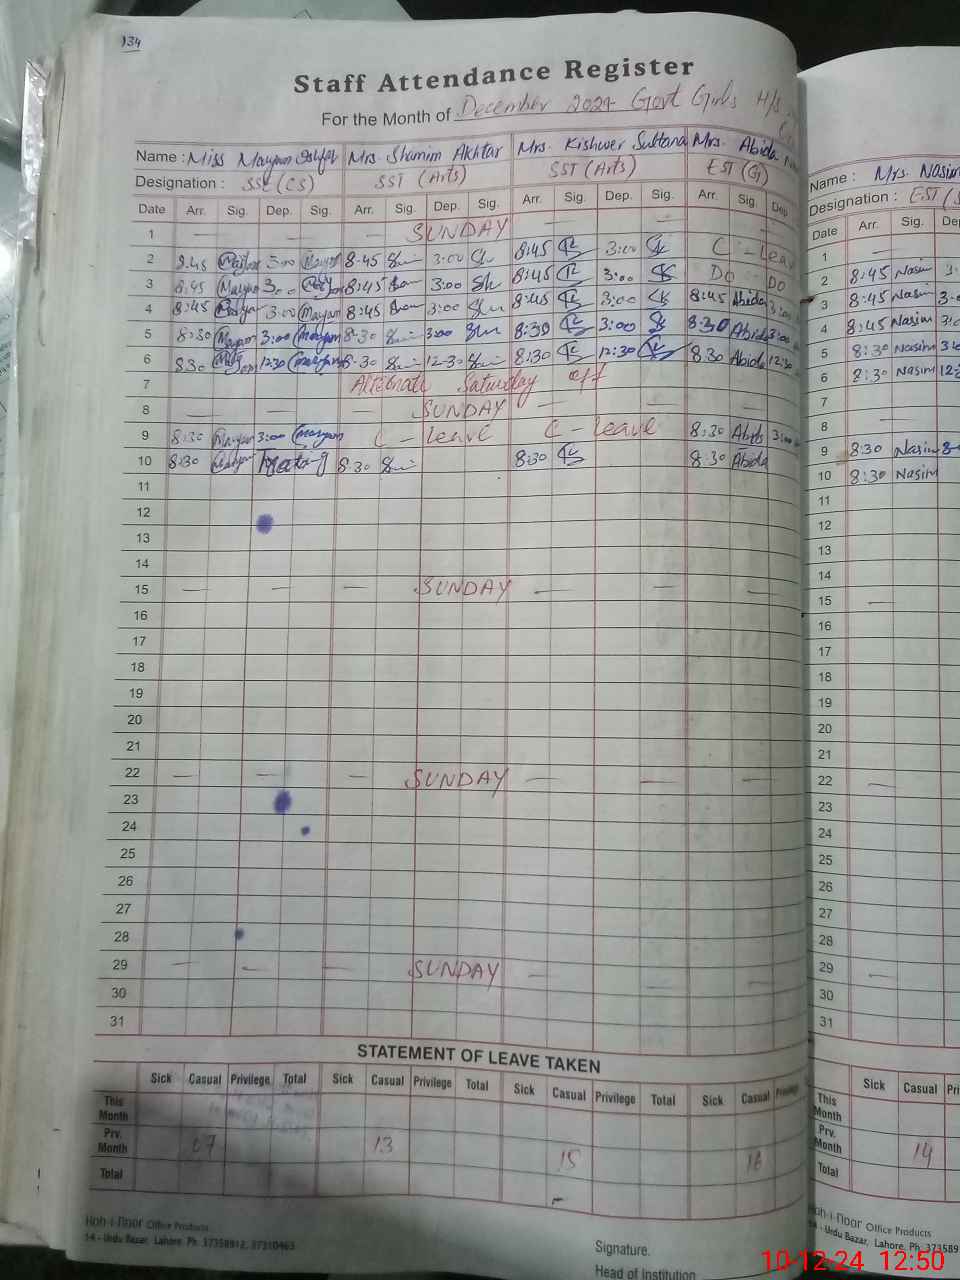 134
Staff Attendance Register
For the Month of December 2024 Govt Girls H/s
Name : Miss Maryam Mrs. Shamim Akhtar Mrs. Kishwer Sultana Mrs. Abida
Designation : SSE (CS) SST (Arts) SST (Arts) EST (G)
Date Arr. Sig. Dep. Sig. Arr. Sig. Dep. Sig. Arr. Sig. Dep. Sig. Arr. Sig. Dep
1 — — — SUNDAY — — —
2 8:45 3:00 8:45 3:00 8:45 3:00 C - Leav
3 8:45 Maryam 3:00 8:45 3:00 Sh 8:45 3:00 Do Do
4 8:45 3:00 Maryam 8:45 3:00 8:45 3:00 8:45 Abida 3:00
5 8:30 Maryam 3:00 Maryam 8:30 3:00 8:30 3:00 8:30 Abida 3:00
6 8:30 12:30 Maryam 8:30 12:30 8:30 12:30 8:30 Abida 12:30
7 Alternate Saturday off
8 — — — SUNDAY — — —
9 8:30 Maryam 3:00 Maryam C - Leave C - Leave 8:30 3:00
10 8:30 Meeting 8:30 8:30 8:30 Abida
11
12
13
14
15 — — — SUNDAY — — —
16
17
18
19
20
21
22 — — — SUNDAY — — —
23
24
25
26
27
28
29 — — — SUNDAY — — —
30
31
STATEMENT OF LEAVE TAKEN
Sick Casual Privilege Total Sick Casual Privilege Total Sick Casual Privilege Total Sick Casual Privilege
This Month
Prv. Month 07 13 15 16
Total
Koh-i-Noor Office Products
14 - Urdu Bazar, Lahore. Ph. 37358912, 37310463
Signature.
Head of Institution
Name : Mrs. Nasim
Designation : EST (S
Date Arr. Sig. De
1 —
2 8:45 Nasim 3:
3 8:45 Nasim 3:0
4 8:45 Nasim 3:0
5 8:30 Nasim 3:0
6 8:30 Nasim 12:3
7
8 —
9 8:30 Nasim
10 8:30 Nasim
11
12
13
14
15 —
16
17
18
19
20
21
22 —
23
24
25
26
27
28
29 —
30
31
Sick Casual Pri
This Month
Prv. Month 14
Total
Koh-i-Noor Office Products
14 - Urdu Bazar, Lahore. Ph. 373589
10-12-24 12:50